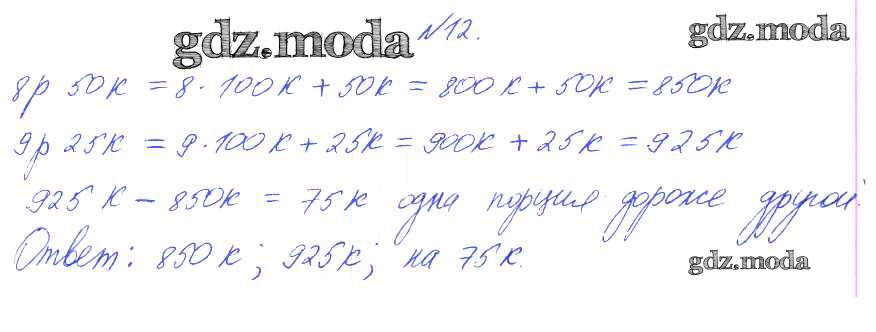 gdz.moda №12. gdz.moda
8р 50к = 8 · 100к + 50к = 800к + 50к = 850к
9р 25к = 9 · 100к + 25к = 900к + 25к = 925к
925к – 850к = 75к одна порция дороже другой.
Ответ: 850к; 925к; на 75к. gdz.moda